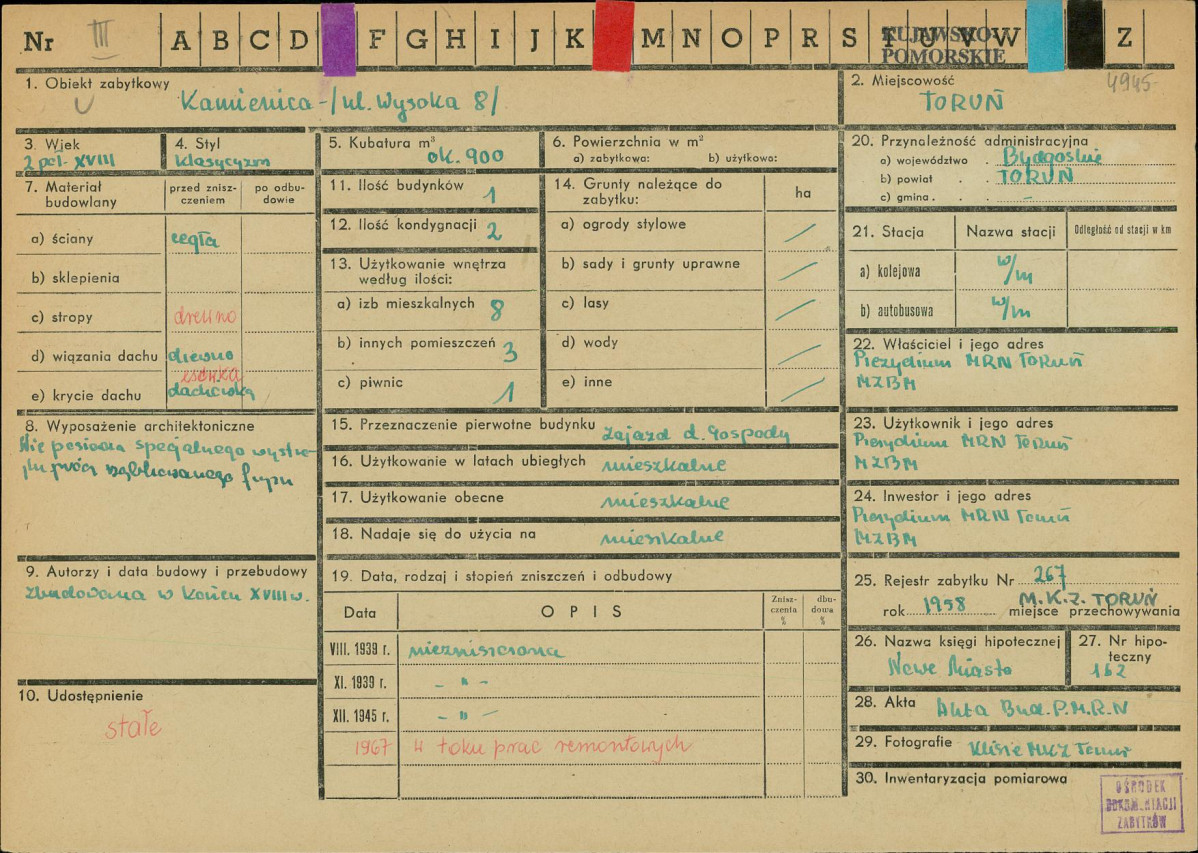 Nr III A B C D F G H I J K M N O P R S T U V W Z
KUJAWSKO-
POMORSKIE
1. Obiekt zabytkowy
Kamienica - /ul. Wysoka 8/
2. Miejscowość 4945
TORUŃ
3. Wiek
2 poł. XVIII
4. Styl
klasycyzm
5. Kubatura m³
ok. 900
6. Powierzchnia w m²
a) zabytkowa: b) użytkowa:
7. Materiał budowlany
przed znisz-
czeniem
po odbu-
dowie
a) ściany cegła
b) sklepienia
c) stropy drewno
d) wiązania dachu drewno
esówka
e) krycie dachu dachówka
8. Wyposażenie architektoniczne
Nie posiada specjalnego wystro-
ju
9. Autorzy i data budowy i przebudowy
Zbudowana w końcu XVIII w.
10. Udostępnienie
stałe
11. Ilość budynków 1
12. Ilość kondygnacji 2
13. Użytkowanie wnętrza
według ilości:
a) izb mieszkalnych 8
b) innych pomieszczeń 3
c) piwnic 1
14. Grunty należące do
zabytku:
ha
a) ogrody stylowe
b) sady i grunty uprawne
c) lasy
d) wody
e) inne
15. Przeznaczenie pierwotne budynku zajazd d. Gospody
16. Użytkowanie w latach ubiegłych mieszkalne
17. Użytkowanie obecne mieszkalne
18. Nadaje się do użycia na mieszkalne
19. Data, rodzaj i stopień zniszczeń i odbudowy
Data OPIS
Znisz-
czenia
%
dbu-
dowa
%
VIII. 1939 r. niezniszczona
XI. 1939 r. - " -
XII. 1945 r. - " -
1967 W toku prac remontowych
20. Przynależność administracyjna
a) województwo . Bydgoskie
b) powiat . . TORUŃ
c) gmina . . . -
21. Stacja Nazwa stacji Odległość od stacji w km
a) kolejowa w/m
b) autobusowa w/m
22. Właściciel i jego adres
Prezydium MRN Toruń
MZBM
23. Użytkownik i jego adres
Prezydium MRN Toruń
MZBM
24. Inwestor i jego adres
Prezydium MRN Toruń
MZBM
25. Rejestr zabytku Nr 267
M.K.Z. TORUŃ
rok 1958 miejsce przechowywania
26. Nazwa księgi hipotecznej
Nowe Miasto
27. Nr hipo-
teczny
162
28. Akta Akta Bud. P.M.R.N
29. Fotografie Klisze MKZ Toruń
30. Inwentaryzacja pomiarowa
OŚRODEK
DOKUMENTACJI
ZABYTKÓW